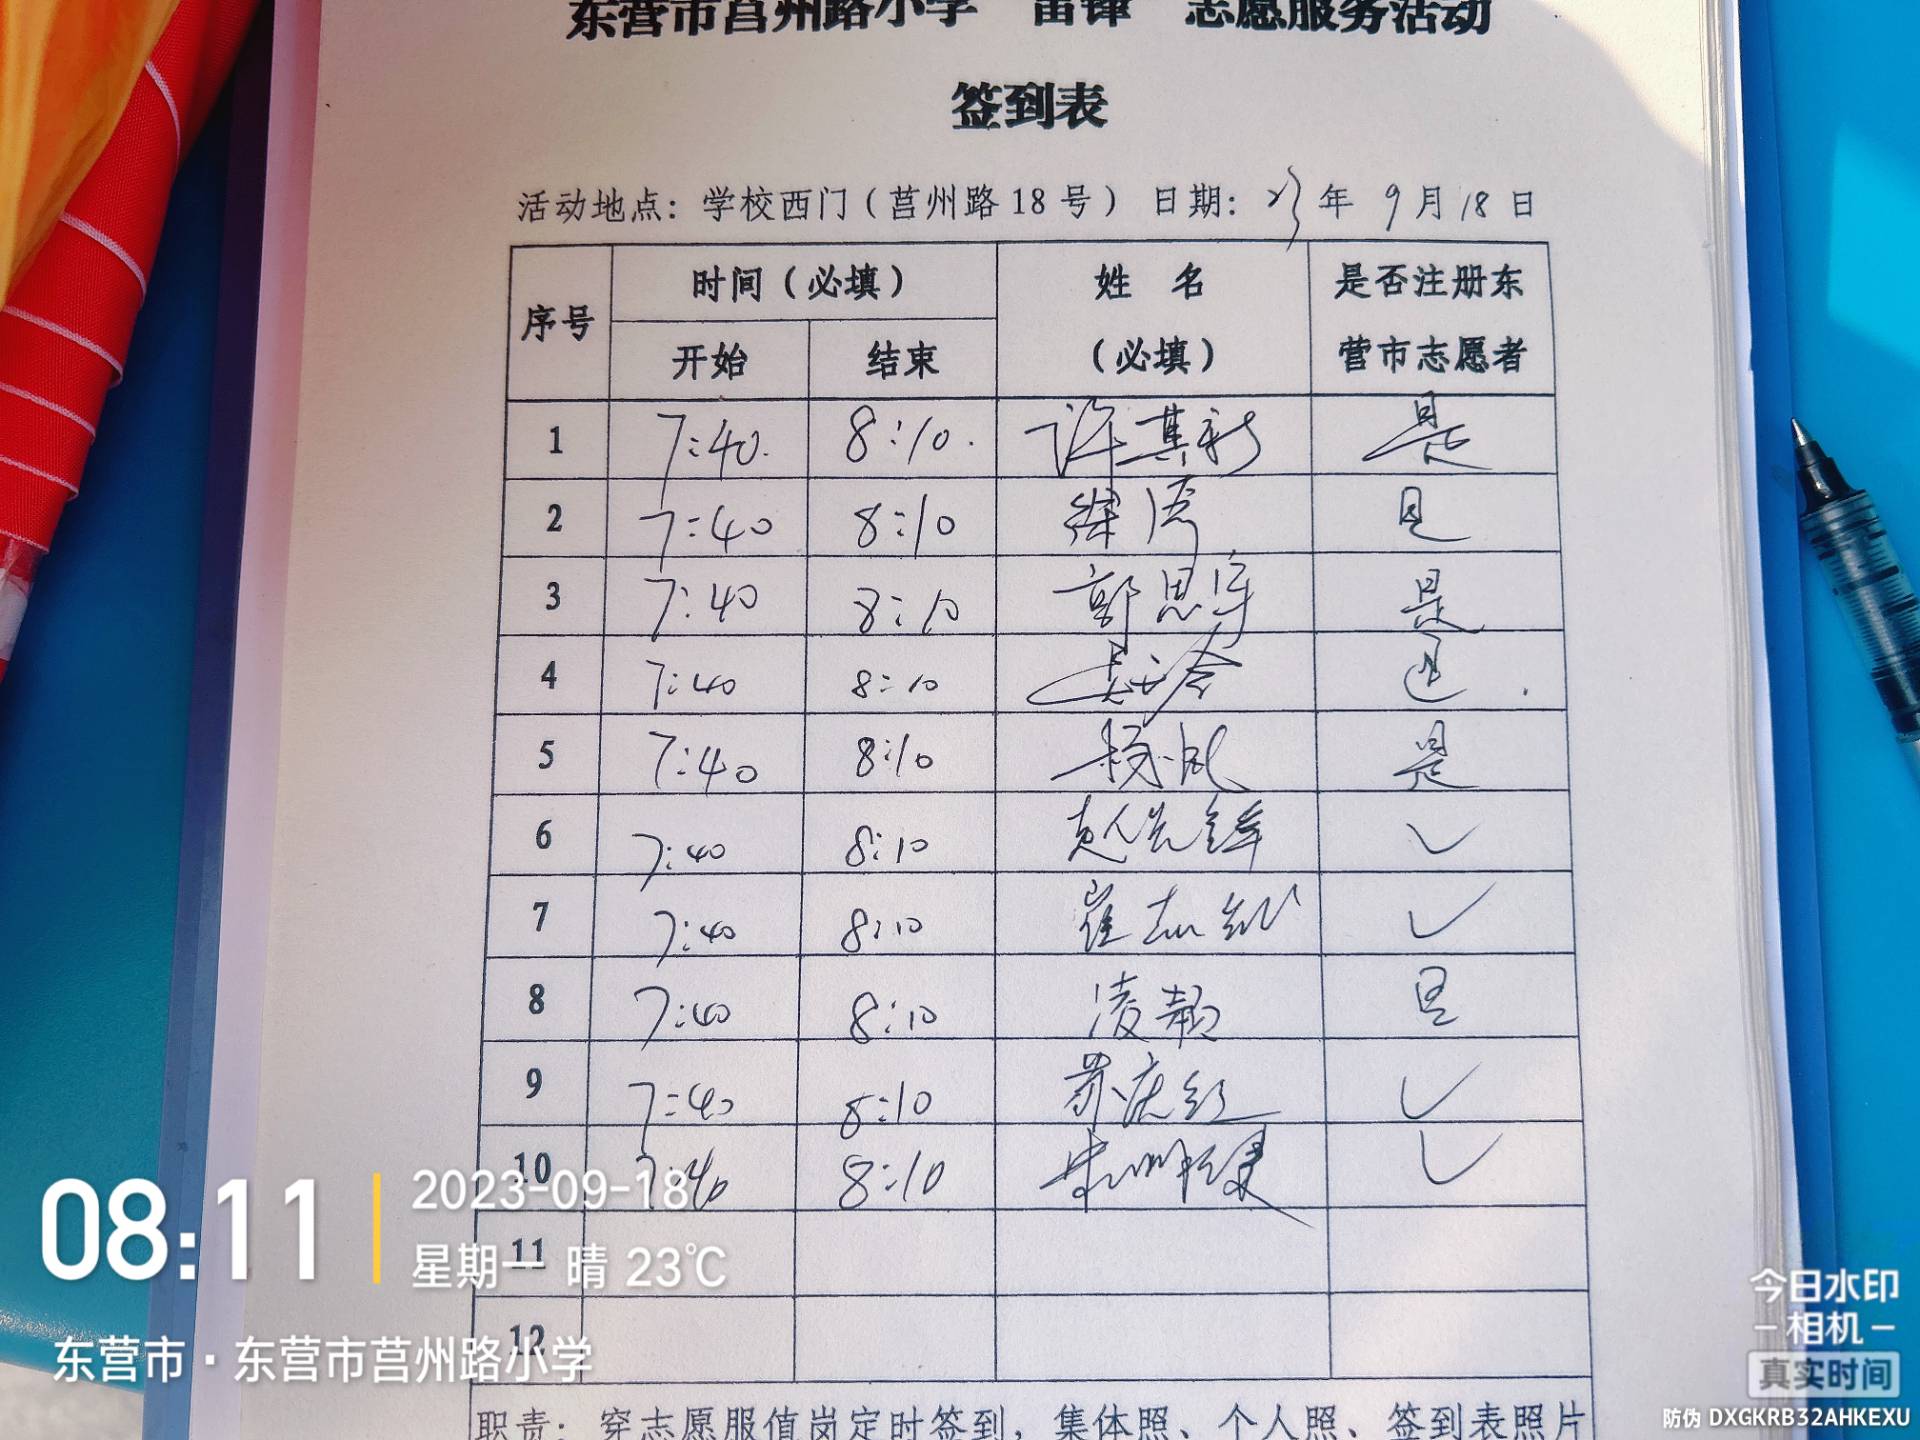 东营市莒州路小学“雷锋”志愿服务活动
签到表
活动地点：学校西门（莒州路18号） 日期：23年 9月18日
序号 时间（必填） 姓 名（必填） 是否注册东营市志愿者
开始 结束
1 7:40. 8:10. 许其新 是
2 7:40 8:10 徐涛 是
3 7:40 8:10 郭思军 是
4 7:40 8:10 是.
5 7:40 8:10 杨帆 是
6 7:40 8:10 赵先锋 ✓
7 7:40 8:10 崔志红 ✓
8 7:40 8:10 凌静 是
9 7:40 8:10 苏庆红 ✓
10 7:40 8:10 ✓
11
12
职责：穿志愿服值岗定时签到，集体照、个人照、签到表照片
08:11
2023-09-18
星期一 晴 23℃
东营市·东营市莒州路小学
今日水印
相机
真实时间
防伪 DXGKRB32AHKEXU